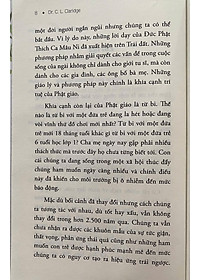 8 • Dr. C. L. Claridge
một đời người ngắn ngủi nhưng chúng ta có thể
bắt đầu. Vì lý do này, những lời dạy của Đức Phật
Thích Ca Mâu Ni đã xuất hiện trên Trái đất. Những
phương pháp nhằm giải quyết các vấn đề trong cuộc
sống của ngài không chỉ dành cho giới tu sĩ, mà còn
dành cho các gia đình, các ông bố bà mẹ. Những
giáo lý và phương pháp này chính là khía cạnh trí
tuệ của Phật giáo.
Khía cạnh còn lại của Phật giáo là từ bi. Thế
nào là từ bi với một đứa trẻ đang la hét hoặc đang
vòi vĩnh thứ đồ chơi mới nhất? Từ bi với một đứa
trẻ mới 18 tháng tuổi khác gì từ bi với một đứa trẻ
6 tuổi học lớp 1? Cha mẹ ngày nay gặp phải nhiều
thách thức mà trước đây họ chưa từng biết tới. Con
cái chúng ta đang sống trong một xã hội thúc đẩy
chúng ham muốn ngày càng nhiều và chính điều
này đã khiến cho môi trường bị ô nhiễm đến mức
báo động.
Mặc dù bối cảnh đã thay đổi nhưng cách chúng
ta tương tác với nhau, dù tốt hay xấu, vẫn không
thay đổi trong hơn 2.500 năm qua. Chúng ta vẫn
chưa nhận ra được các khuôn mẫu của sự tức giận,
thất vọng, phản ứng thái quá cũng như những ham
muốn con trẻ được hạnh phúc mạnh mẽ đến mức
chúng ta có nguy cơ tạo ra hiệu ứng trái ngược.